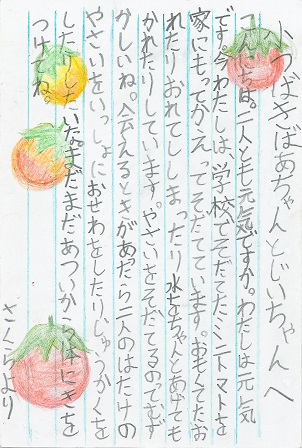 小つばきばあちゃんとじいちゃんへ
こんにちは。二人とも元気ですか。わたしは元気
です。今わたしは、学校でそだてたミニトマトを
家にもってかえってそだてています。おもくてたお
れたりおれてしまったり水をちゃんとあげても
かれたりしています。やさいをそだてるのってむず
かしいね。会えるときがあったら二人のはたけの
やさいをいっしょにおせわをしたりしゅうかくを
したりしたいな。まだまだあついから体にきを
つけてね。
さくらより